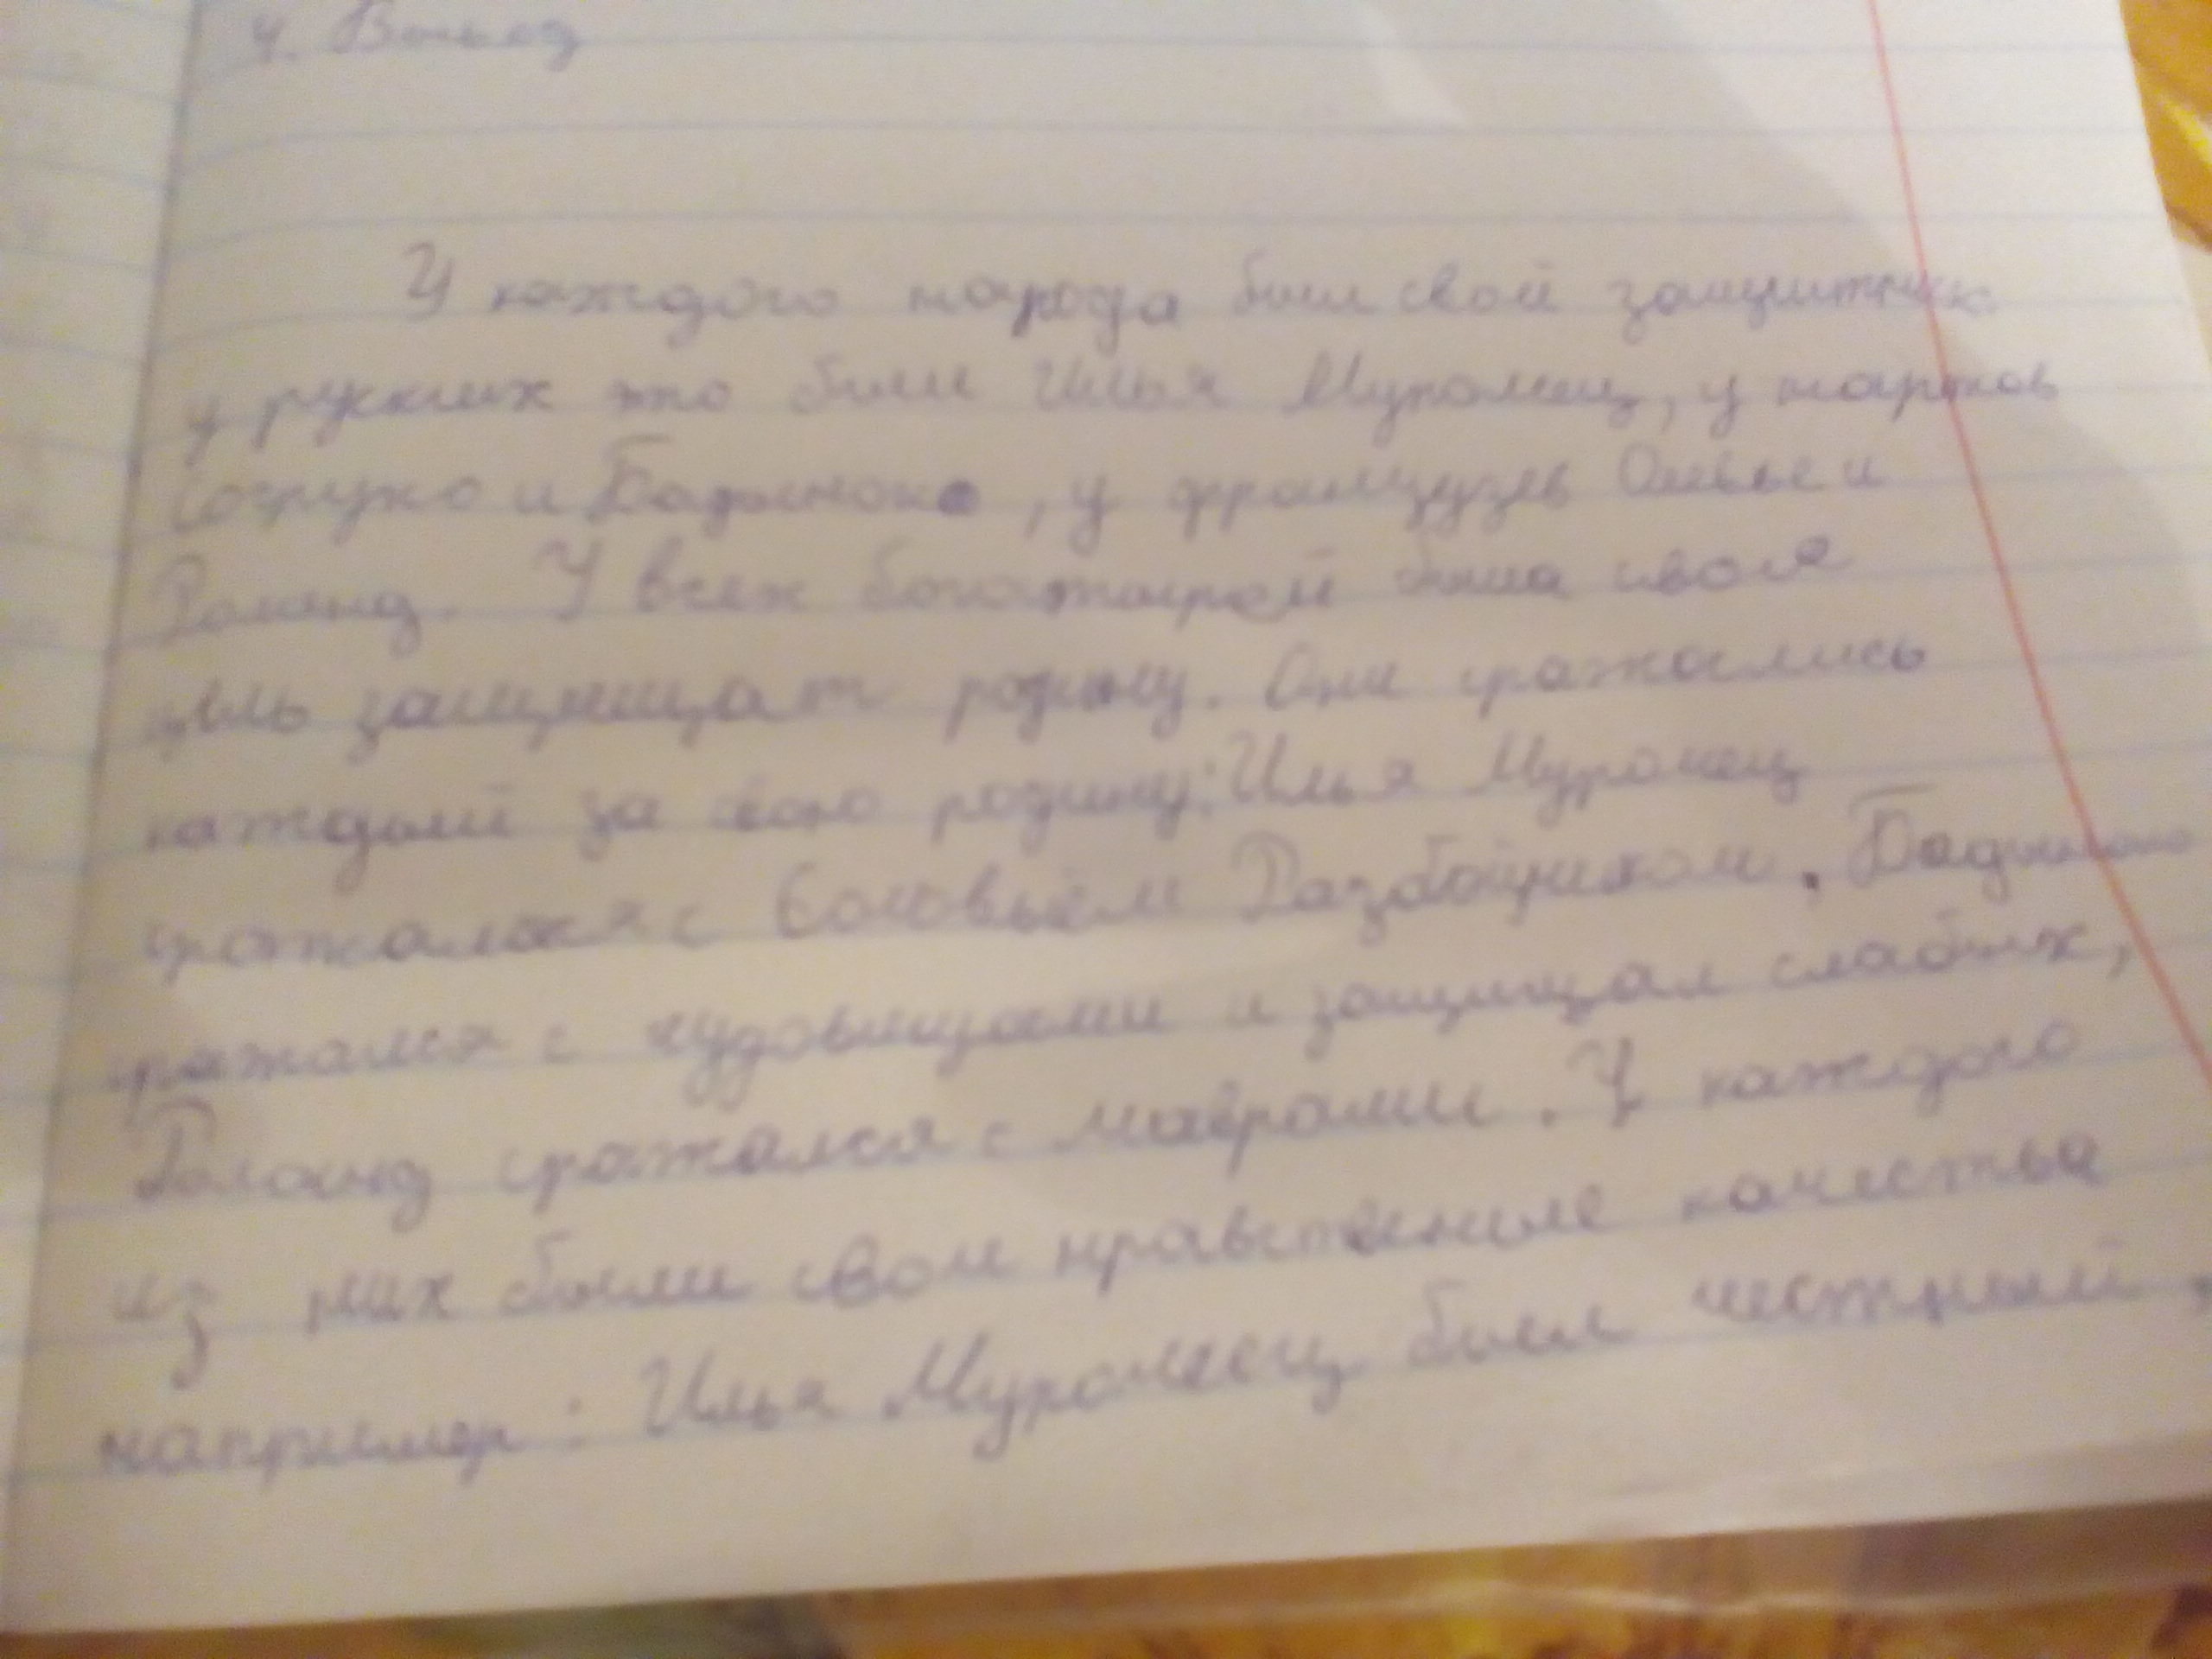 4. Вывод
У каждого народа был свой защитник
у руских это были Илья Муромец, у нартов
Сосруко и Бадыноко, у французев Оливье и
Роланд. У всех богатырей была своя
цель защищат родину. Они сражались
каждый за свою родину: Илья Муромец
сражался с Соловьём Разбойником. Бадыноко
сражался с чудовищами и защищал слабых,
Роланд сражался с маврами. У каждого
из них были свои нравственые качества
например: Илья Муромец был честный